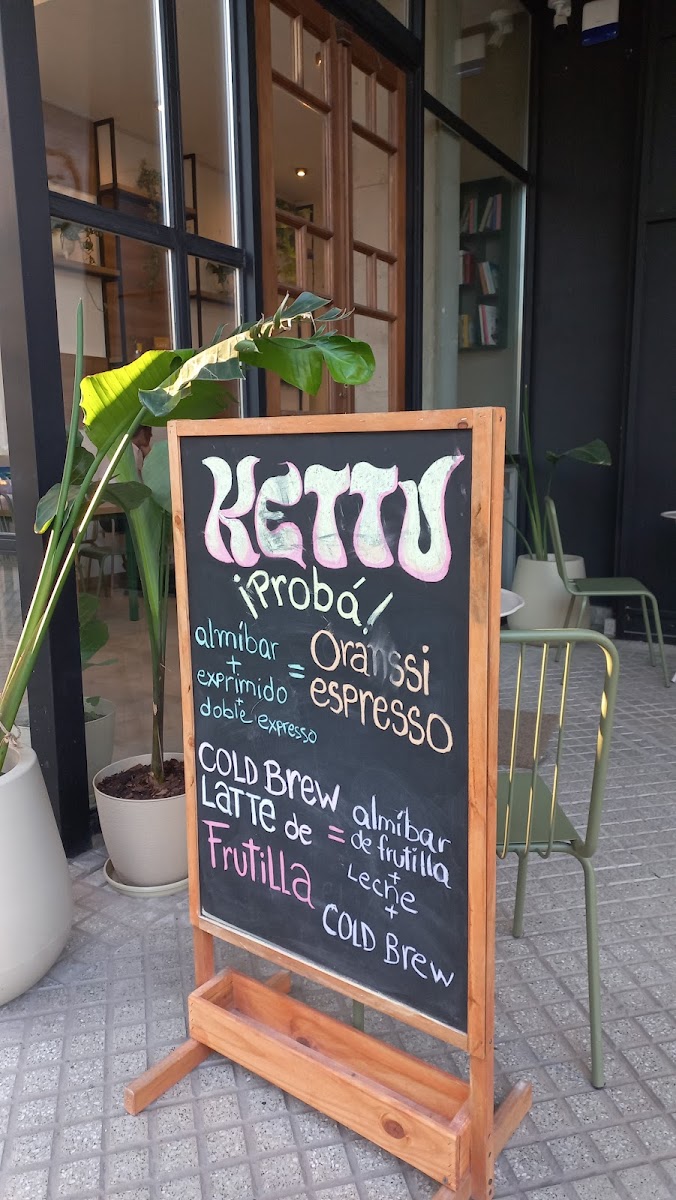 KETTU
¡Probá!
almíbar
+
exprimido
+
doble expresso
=
Oranssi
espresso
COLD Brew
LATTE de
Frutilla
=
almíbar
de frutilla
+
Leche
+
COLD Brew